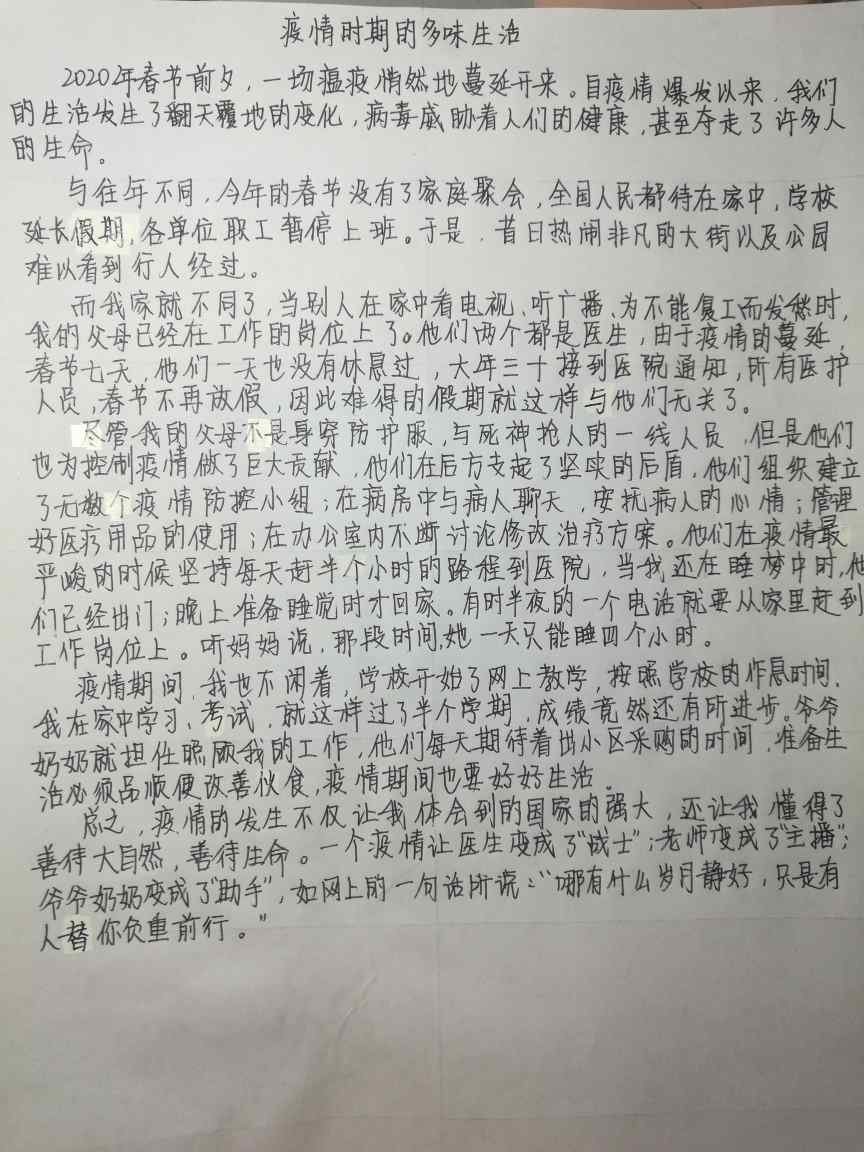 疫情时期的多味生活
2020年春节前夕，一场瘟疫悄然地蔓延开来。自疫情爆发以来，我们
的生活发生了翻天覆地的变化，病毒威胁着人们的健康，甚至夺走了许多人
的生命。
与往年不同，今年的春节没有了家庭聚会，全国人民都待在家中，学校
延长假期，各单位职工暂停上班。于是，昔日热闹非凡的大街以及公园
难以看到行人经过。
而我家就不同了，当别人在家中看电视、听广播、为不能复工而发愁时，
我的父母已经在工作的岗位上了。他们两个都是医生，由于疫情的蔓延，
春节七天，他们一天也没有休息过，大年三十接到医院通知，所有医护
人员，春节不再放假，因此难得的假期就这样与他们无关了。
尽管我的父母不是身穿防护服，与死神抢人的一线人员，但是他们
也为控制疫情做了巨大贡献，他们在后方支起了坚实的后盾，他们组织建立
了无数个疫情防控小组；在病房中与病人聊天，安抚病人的心情；管理
好医疗用品的使用；在办公室内不断讨论修改治疗方案。他们在疫情最
严峻的时候坚持每天赶半个小时的路程到医院，当我还在睡梦中时，他
们已经出门；晚上准备睡觉时才回家。有时半夜的一个电话就要从家里赶到
工作岗位上。听妈妈说，那段时间，她一天只能睡四个小时。
疫情期间，我也不闲着，学校开始了网上教学，按照学校的作息时间，
我在家中学习、考试，就这样过了半个学期，成绩竟然还有所进步。爷爷
奶奶就担任照顾我的工作，他们每天期待着出小区采购的时间，准备生
活必须品顺便改善伙食，疫情期间也要好好生活。
总之，疫情的发生不仅让我体会到的国家的强大，还让我懂得了
善待大自然，善待生命。一个疫情让医生变成了“战士”；老师变成了“主播”；
爷爷奶奶变成了“助手”，如网上的一句话所说：“哪有什么岁月静好，只是有
人替你负重前行。”